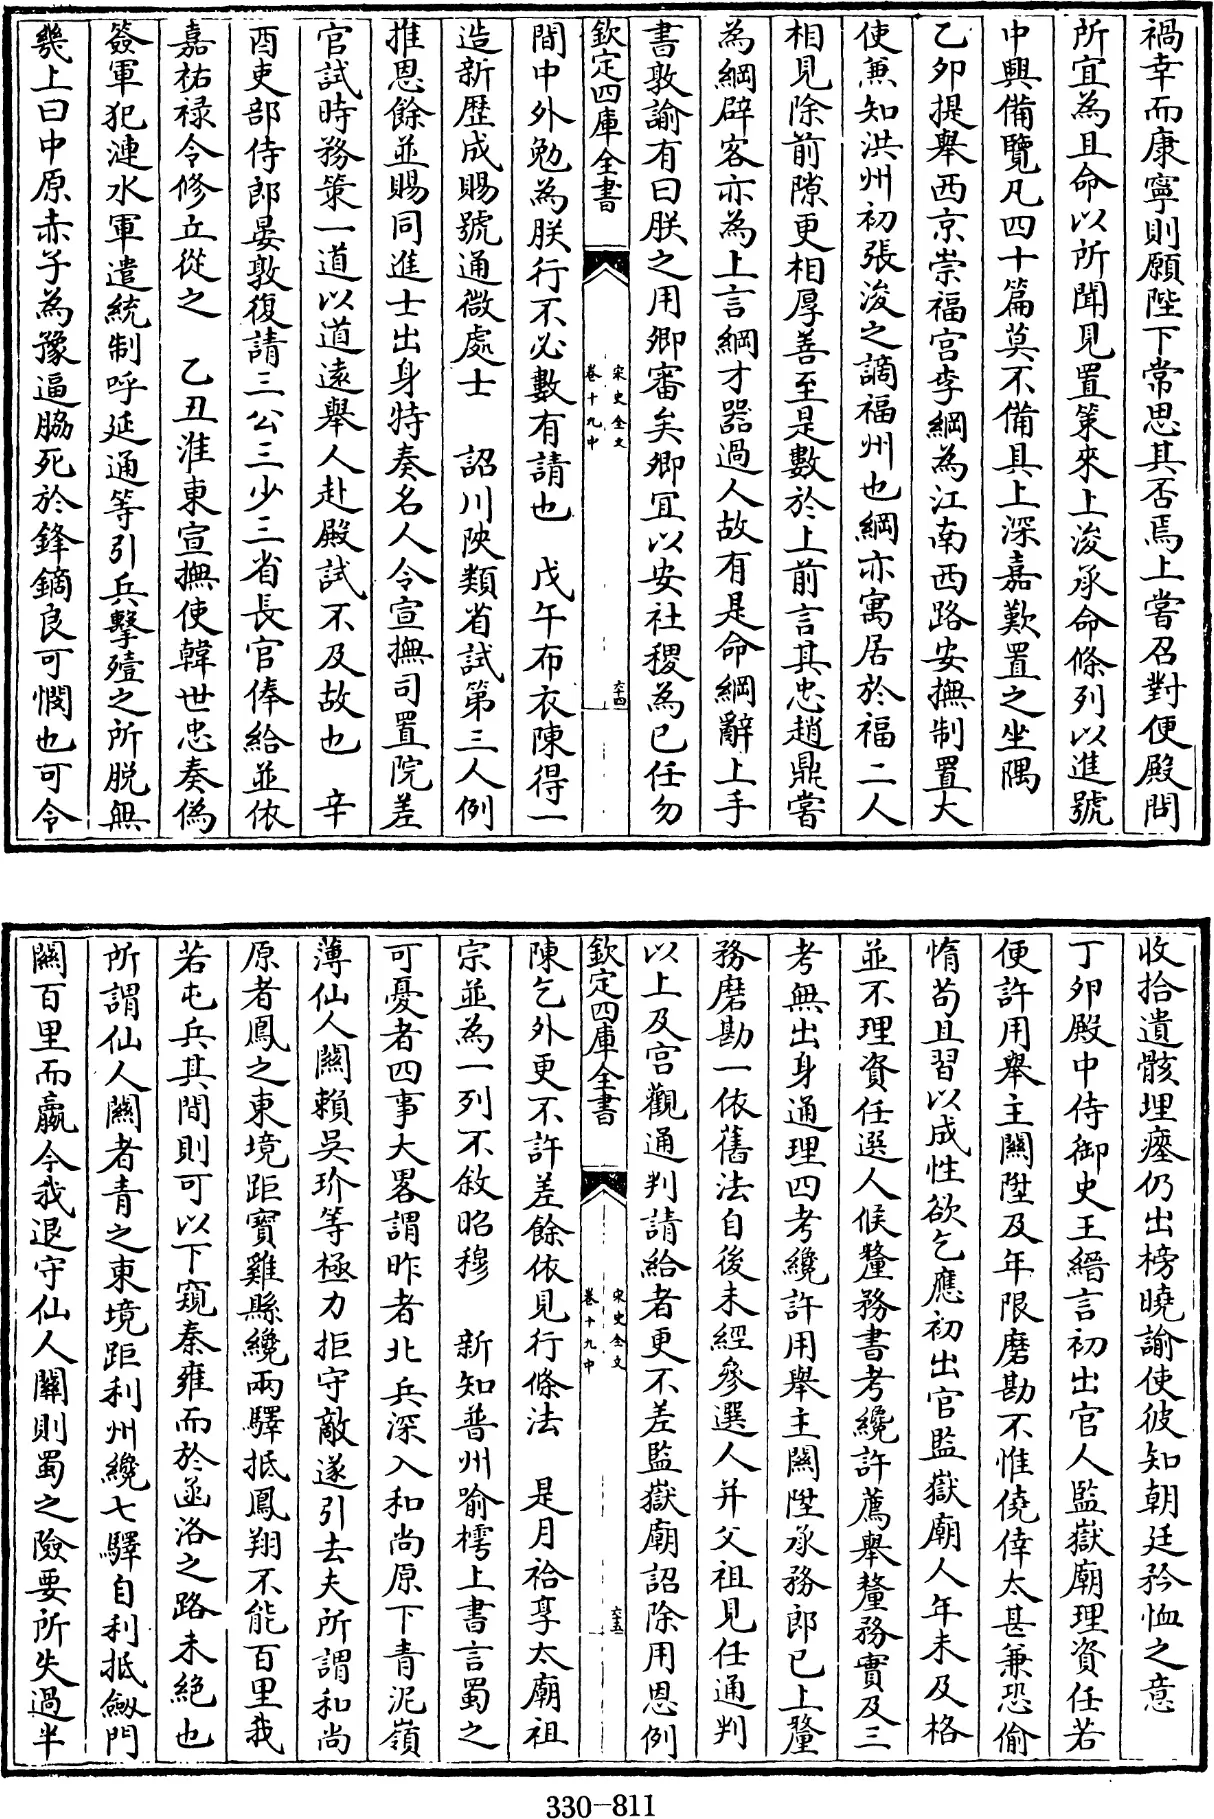 禍幸而康寧則願陛下常思其否焉上嘗召對便殿問
所宜為且命以所聞見置策來上浚承命條列以進號
中興備覽凡四十篇莫不備具上深嘉歎置之坐隅
乙卯提舉西京崇福宫李綱為江南西路安撫制置大
使兼知洪州初張浚之謫福州也綱亦寓居於福二人
相見除前隙更相厚善至是數於上前言其忠趙鼎嘗
為綱辟客亦為上言綱才器過人故有是命綱辭上手
書敦諭有曰朕之用卿審矣卿宜以安社稷為已任勿
欽定四庫全書
宋史全文
卷十九中
六十四
間中外勉為朕行不必數有請也　戊午布衣陳得一
造新歴成賜號通微處士　詔川陜類省試第三人例
推恩餘並賜同進士出身特奏名人令宣撫司置院差
官試時務策一道以道遠舉人赴殿試不及故也　辛
酉吏部侍郎晏敦復請三公三少三省長官俸給並依
嘉祐禄令修立從之　乙丑淮東宣撫使韓世忠奏偽
簽軍犯漣水軍遣統制呼延通等引兵擊殪之所脱無
幾上曰中原赤子為豫逼脇死於鋒鏑良可憫也可令
收拾遺骸埋瘞仍出榜曉諭使彼知朝廷矜恤之意
丁卯殿中侍御史王縉言初出官人監獄廟理資任若
便許用舉主關陞及年限磨勘不惟僥倖太甚兼恐偷
惰苟且習以成性欲乞應初出官監獄廟人年未及格
並不理資任選人候釐務書考纔許薦舉釐務實及三
考無出身通理四考纔許用舉主關陞承務郎已上釐
務磨勘一依舊法自後未經參選人并父祖見任通判
以上及宫觀通判請給者更不差監獄廟詔除用恩例
欽定四庫全書
宋史全文
卷十九中
六十五
陳乞外更不許差餘依見行條法　是月祫享太廟祖
宗並為一列不敘昭穆　新知普州喻樗上書言蜀之
可憂者四事大畧謂昨者北兵深入和尚原下青泥嶺
薄仙人關賴吳玠等極力拒守敵遂引去夫所謂和尚
原者鳳之東境距寶雞縣纔兩驛抵鳳翔不能百里我
若屯兵其間則可以下窺秦雍而於函洛之路未絶也
所謂仙人關者青之東境距利州纔七驛自利抵劔門
關百里而羸今我退守仙人關則蜀之險要所失過半
330-811